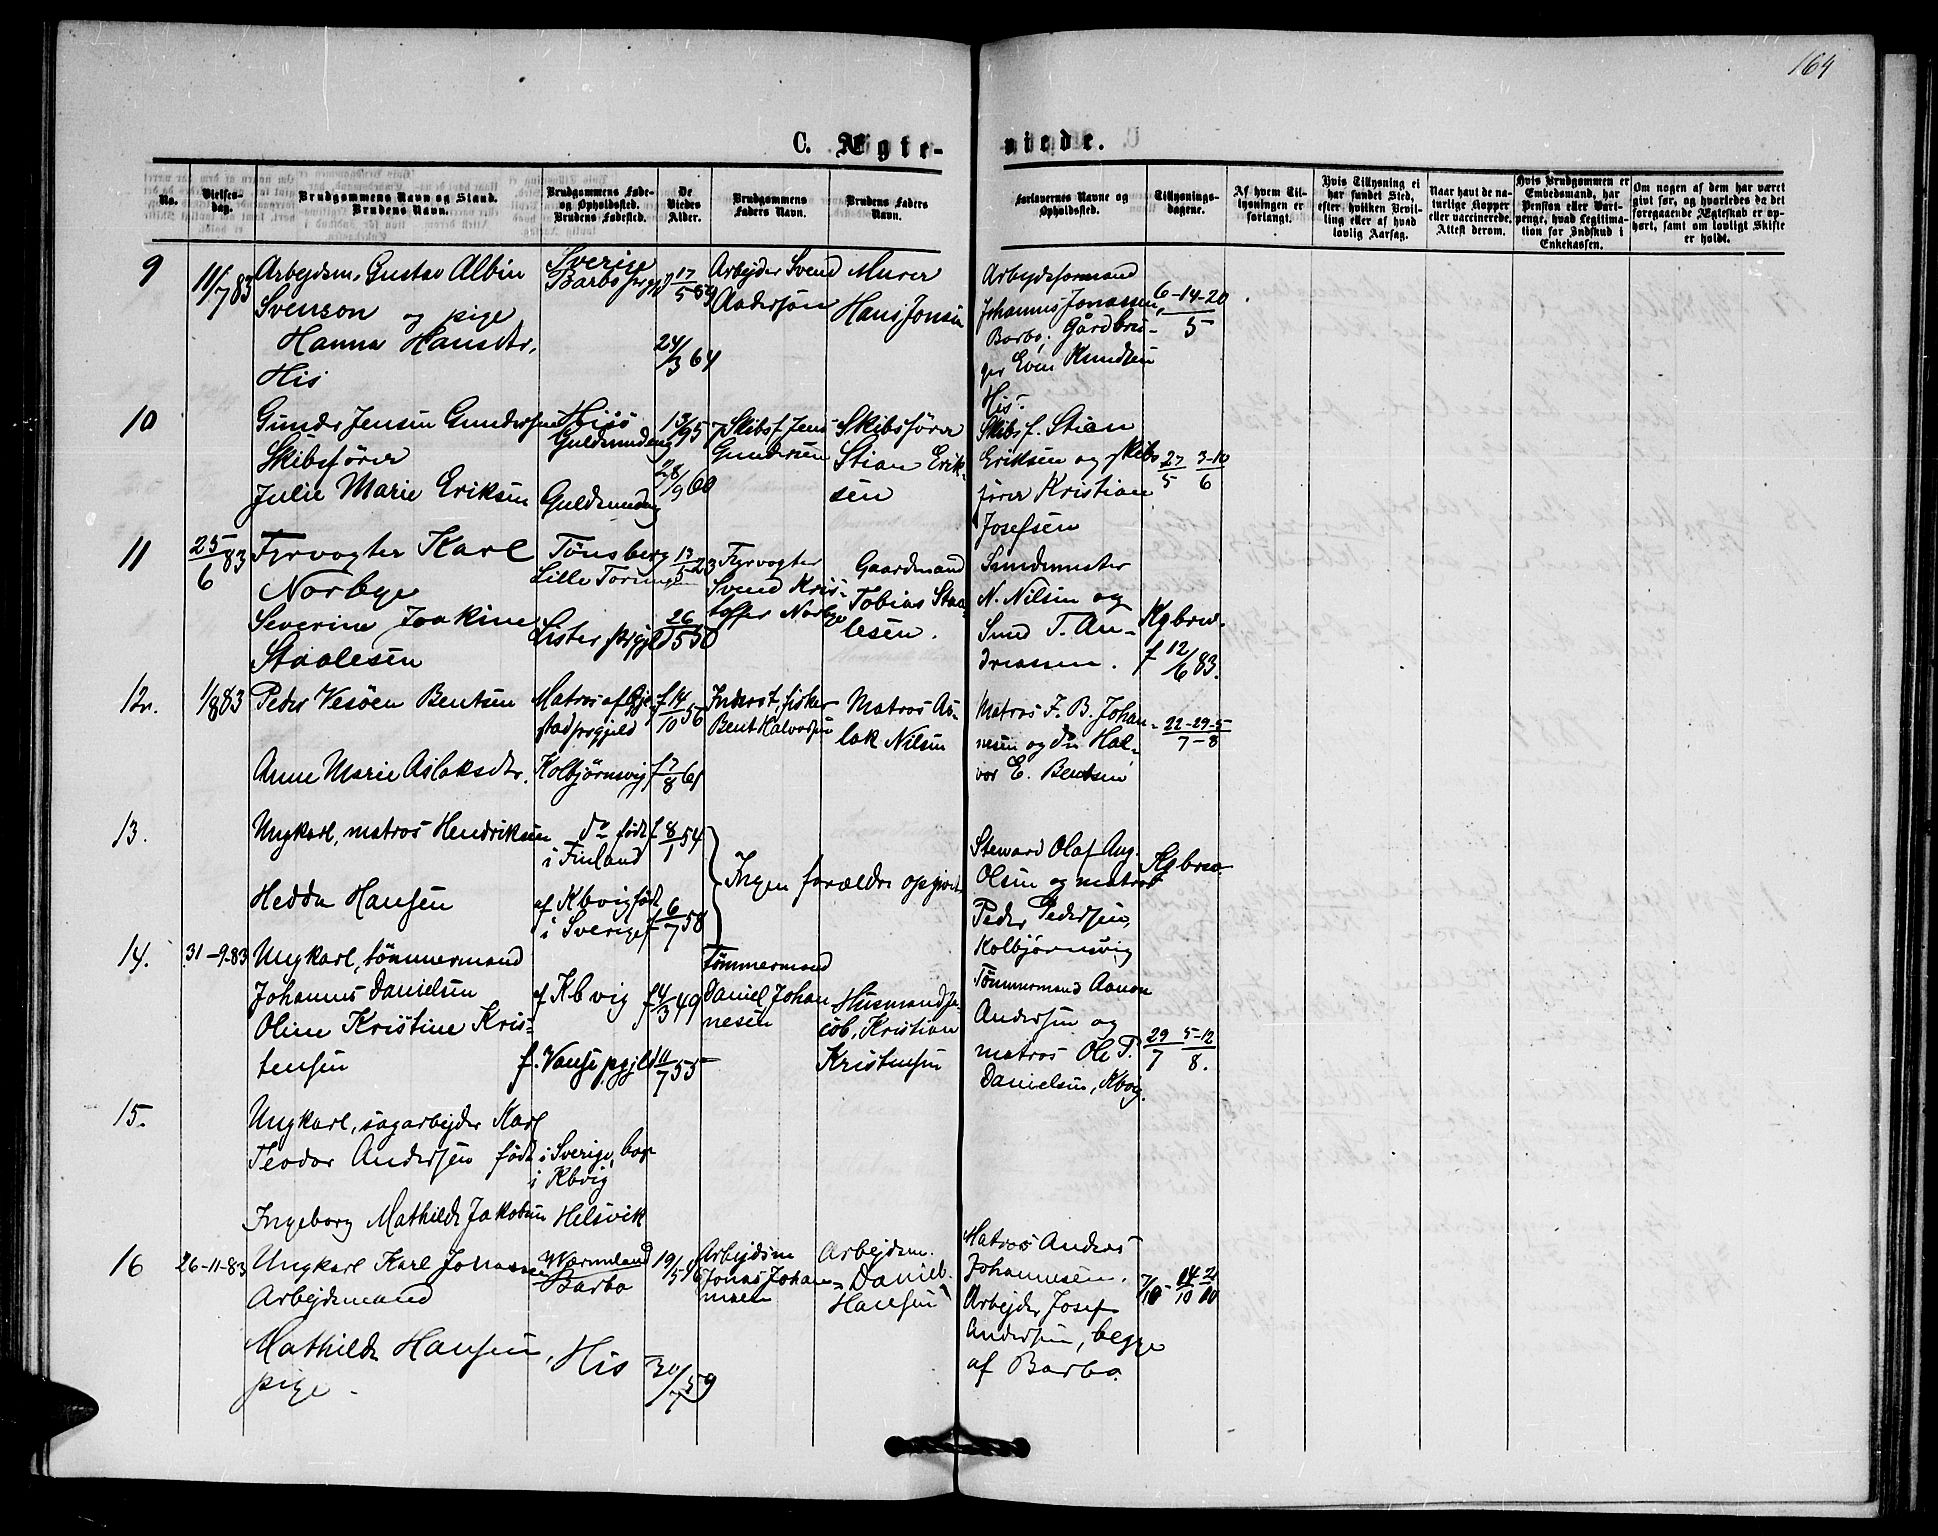 164
C. Ægte-
viede.
No.
Vielses-
dag.
Brudgommens Navn og Stand.
Brudens Navn.
Brudgommens Føde-
og Opholdssted.
Brudens Fødested.
De
Viedes
Alder.
Brudgommens
Faders Navn.
Brudens Faders
Navn.
Forlovernes Navne og
Opholdssted.
Tillysnings-
dagene.
Af hvem Til-
lysningen er
forlangt.
Hvis Tillysning ei
har fundet Sted,
efter hvilken Bevil-
ling eller af hvad
lovlig Aarsag.
Naar havt de na-
turlige Kopper
eller vaccinerede.
Attest derom.
Hvis Brudgommen er
Embedsmand, har
Pension eller Vart-
penge, hvad Legitima-
tion for Indskud i
Enkekassen.
Om nogen af dem har været
givt før, og hvorledes da det
foregaaende Ægteskab er op-
hørt, samt om lovligt Skifte
er holdt.
9
11/7 83
Arbejdsm. Gustav Albin
Svenson og pige
Hanna Hansdtr,
His
Sverige
Barbo prgjd
17/5 59
24/3 64
Arbejder Svend
Anderson
Murer
Hans Jonsen
Arbejdsformand
Johannes Jonassen,
Barbo; Gårdbru-
ger Even Knudsen
His.
6-14-20
5
10
Gunder Jensen Gundersen
Skibsfører
Julie Marie Eriksen
Hisö
Guldsmedeng
Guldsmedeng
13/9 57
28/9 60
Skibsf. Jens
Gundersen
Skibsfører
Stian Erik-
sen
Skibsf. Stian
Eriksen og skibs
fører Kristian
Josefsen
27 3-10
5 6
11
25/6 83
Fyrvogter Karl
Norbye
Severine Joakine
Staalesen
Tönsberg
Lille Torungen
Lister prgjeld
13/5 23
26/5 50
Fyrvogter
Svend Kris-
toffer Norbye
Gaardmand
Tobias Staa-
lesen.
N. Nilsen og
T. An-
driassen.
Kgbrev.
f 12/6 83.
12.
1/8 83
Peder Vesöen Bentsen
Anne Marie Aslaksdtr.
Matros af Gje-
stad prgjeld
Kolbjørnsvig
f 14/10 56
f 7/8 61
Inderst, fisker
Bent Halvorsen
Matros As-
lak Nilsen
Matros F. B. Johan-
nesen og do Hal-
vor E. Bentsen
22-29-5
7-8
13.
Ungkarl, matros Hendriksen
Hedda Hansen
do født
i Finland
af Kbvig født
i Sverige
f 8/1 54
f 6/7 58
Ingen forældre opgivet
Steward Olaf Aug.
Olsen og matros
Peder Pedersen,
Kolbjørnsvig
Kgbrev
14.
31-9-83
Ungkarl, tömmermand
Johannes Danielsen
Oline Kristine Kris-
tensen
af Kbvig
f. Vanse pgjeld
f 4/3 49
11/7 55
Tömmermand
Daniel Johan
nesen
Husmand Ja-
cob, Kristian
Kristensen
Tömmermand Aanon
Andersen og
matros Ole P.
Danielsen, Kbvig.
29 5-12
7 8.
15.
Ungkarl, sagarbejder Karl
Teodor Andersen
Ingeborg Mathilde Jakobsen
født i Sverige, bor
i Kbvig
Helsvik
16
26-11-83
Ungkarl Karl Jonassen
Arbejdsmand
Mathilde Hansen,
pige
Wärmland
Barbo
His
19/5 56
30/7 59
Arbejdsm
Jonas Johan-
nesen
Arbejdsm.
Daniel
Hansen
Matros Anders
Johannesen.
Arbejder Josef
Andersen, begge
af Barbo.
7/10 14/10 21/10